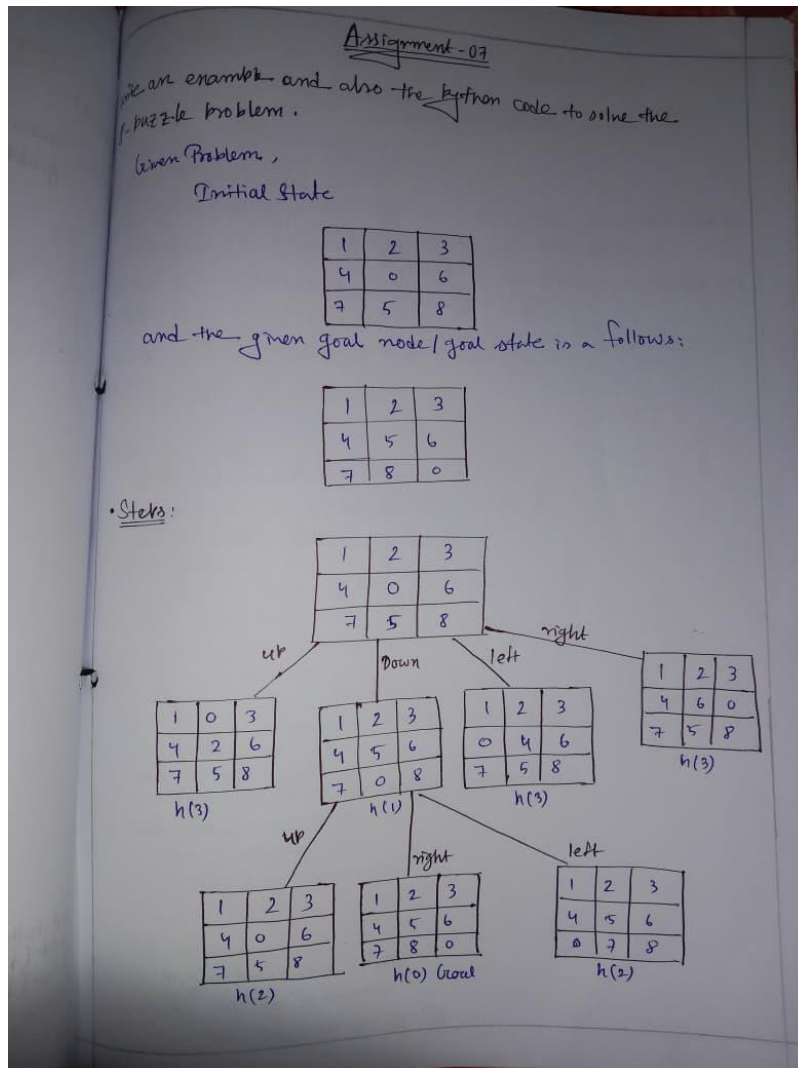 Assignment-07
an example and also the python code to solve the
puzzle problem.
Given Problem,
Initial State
1 2 3
4 0 6
7 5 8
and the given goal node/goal state is a follows:
1 2 3
4 5 6
7 8 0
• Steps:
1 2 3
4 0 6
7 5 8
up Down left right
1 0 3
4 2 6
7 5 8
h(3)
1 2 3
4 5 6
7 0 8
h(1)
1 2 3
0 4 6
7 5 8
h(3)
1 2 3
4 6 0
7 5 8
h(3)
up right left
1 2 3
4 0 6
7 5 8
h(2)
1 2 3
4 5 6
7 8 0
h(0) Goal
1 2 3
4 5 6
0 7 8
h(2)